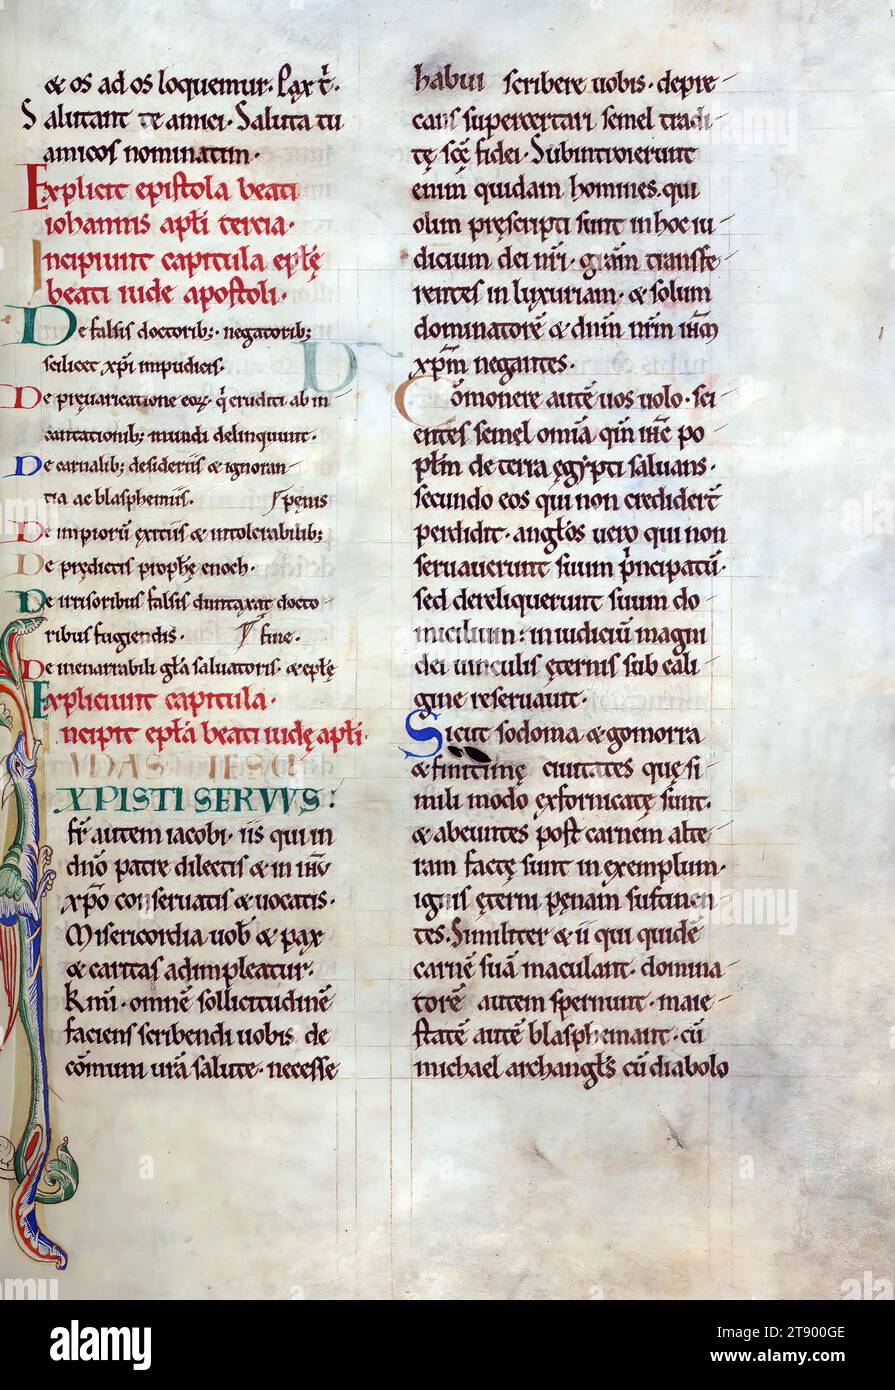 & os ad os loquemur. Pax t̄.
Salutant te amici. Saluta tu
amicos nominatim.
Explicit epistola beati
iohannis apl̄i tercia.
Incipiunt capitula epl̄ę
beati iude apostoli.
De falsis doctorib; negatorib;
scilicet xp̄i impudicis.
De pręuaricatione eoꝝ. q̄ eruditi ab in
cantationib; mundi delinquunt.
De carnalib; desideriis & ignoran
tia ac blasphemiis. spęnis
De impiorū exitiis & intolerabilib;
De prędictis prophę̄ enoch.
De irrisoribus falsis dumtaxat docto
ribus fugiendis. fine.
De inenarrabili gl̄a saluatoris. & epl̄ę
Expliciunt capitula.
Incipit epl̄a beati iudę apl̄i.
IUDAS IESU
XPISTI SERVVS:
fr̄ autem iacobi. iis qui in
dn̄o patre dilectis & in ih̄u
xp̄o conseruatis & uocatis.
Misericordia uob̄ & pax
& caritas adimpleatur.
Km̄i. omnē sollicitudinē
faciens scribendi uobis de
cōmuni ur̄a salute. necesse
habui scribere uobis. depre
cans supercertari semel tradi
tę scę̄ fidei. Subintroierunt
enim quidam homines. qui
olim pręscripti sunt in hoc iu
dicium dei nr̄i. grām transfe
rentes in luxuriam. & solum
dominatorē & dn̄m nr̄m ih̄m
xp̄m negantes.
Cōmonere autē uos uolo. sci
entes semel omīa qm̄ ih̄c po
pl̄m de terra ęgypti saluans.
secundo eos qui non credider̄t
perdidit. angl̄os uero qui non
seruauerunt suum p̄ncipatū.
sed dereliquerunt suum do
micilium: in iudiciū magni
dei uinculis ęternis sub cali
gine reseruauit.
Sicut sodoma & gomorra
& finitimę ciuitates quę si
mili modo exfornicatę sunt.
& abeuntes post carnem alte
ram factę sunt in exemplum.
ignis ęterni pęnam sustinen
tes. Similiter & ii qui quidē
carnē suā maculant. domina
torē autem spernunt. maie
statē autē blasphemant. cū
michael archangl̄s cū diabolo
alamy
Image ID: 2T900GE
www.alamy.com